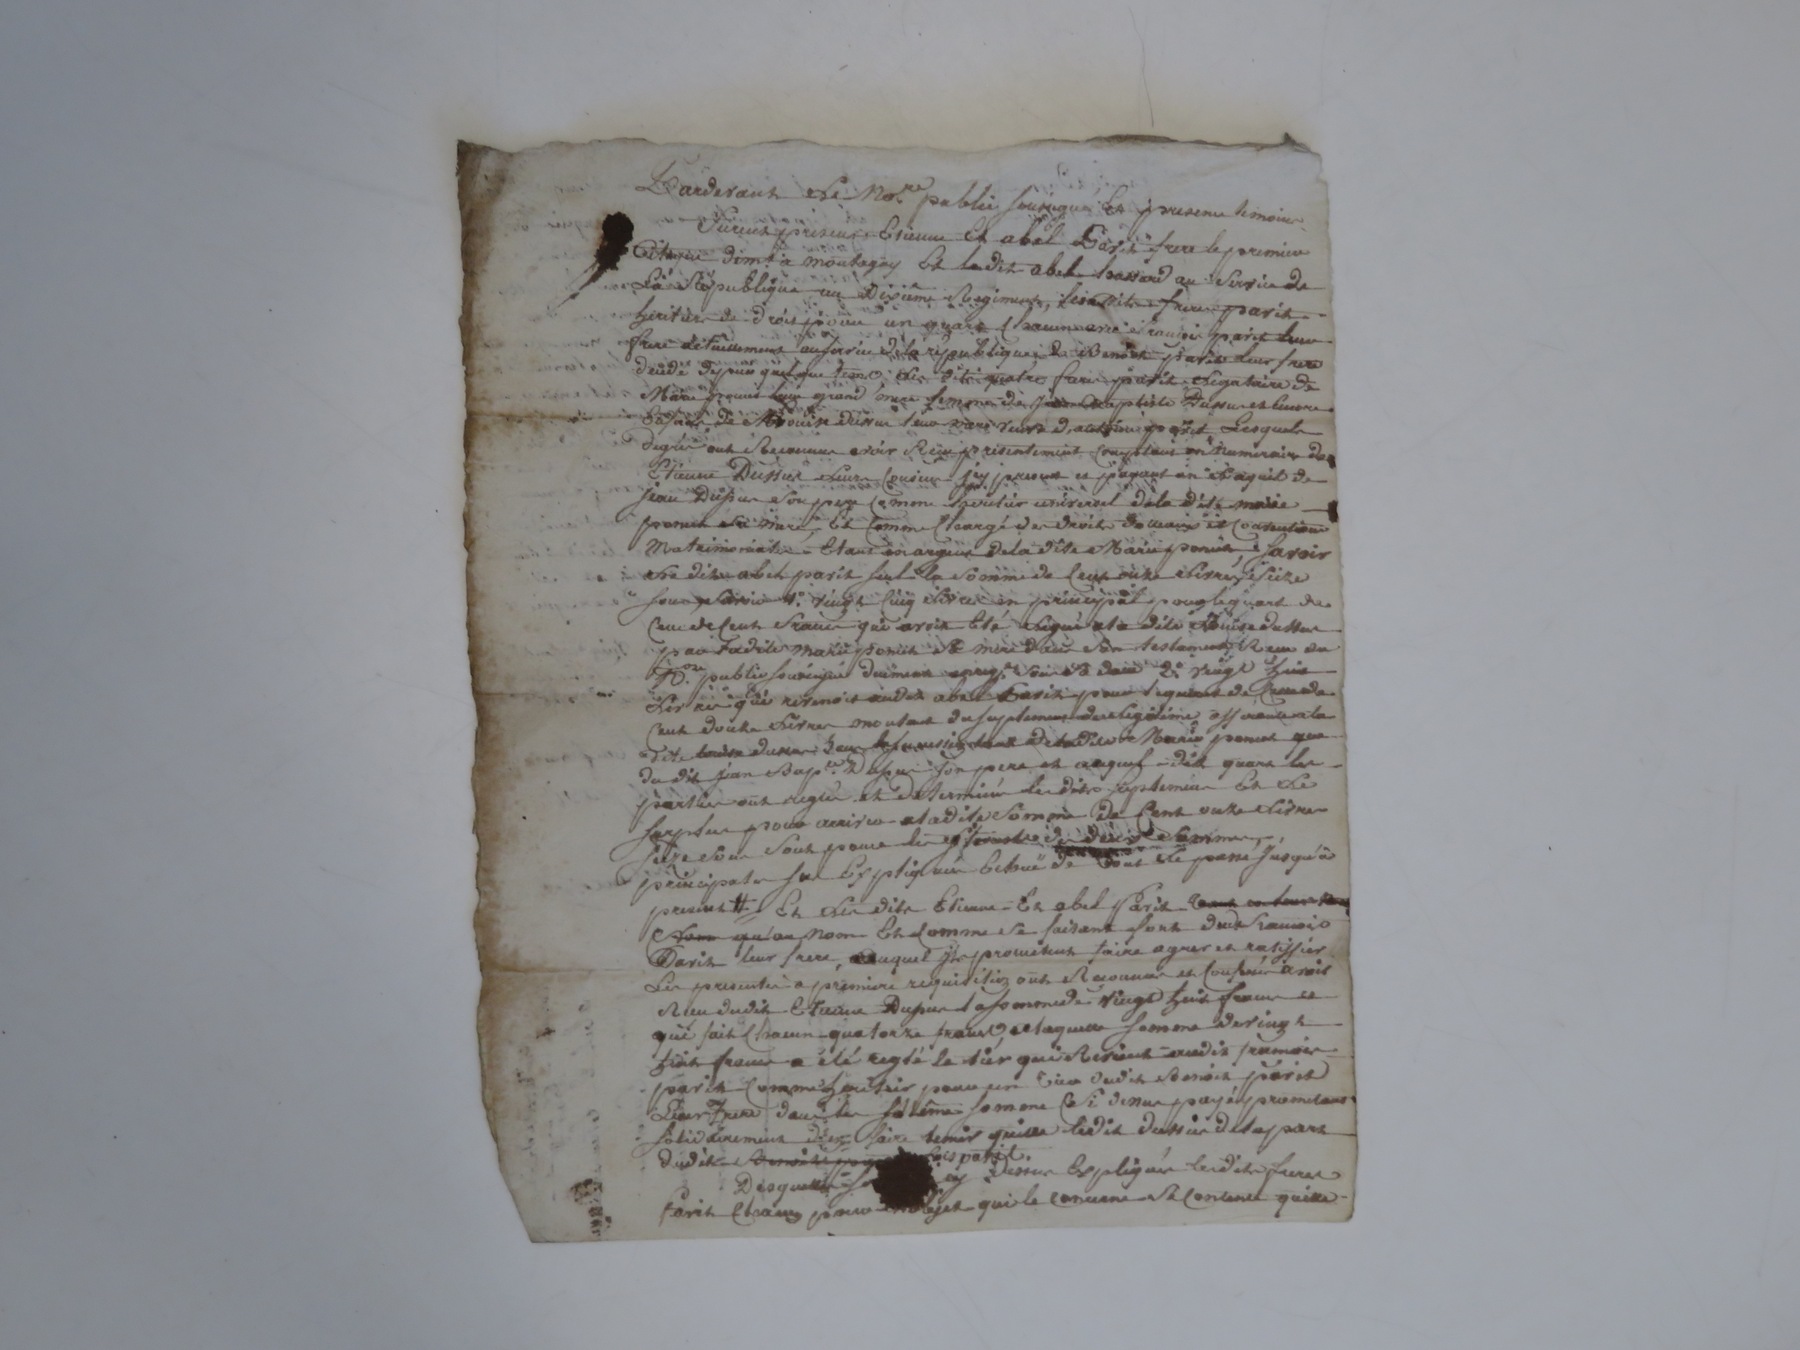 Pardevant Le No.re public soussigné Et présens témoins
Furent présens Etienne Et abel Parit frere le premier
dem.t a montagny Et le dit abel hussard au service de
La République au Dixième Regiment, lesdits freres parit
héritiers de droit pour un quart chacun avec françois parit leur
frere actuellement au service de la république & Benoit parit leur frere
décédé depuis quelque tems Les dits quatre freres parit Légataire de
Marie poncet leur grand mere femme de jean Baptiste Dussur et Encore
de Louise dussur leur mere veuve d'antoine parit Lesquels
de gré ont Reconnu avoir Reçu présentement Comptant en Numeraire de
Etienne Dussur Leur Cousin ici present et payant en Laquit de
jean Dussur Son pere Comme héritier universel de la dite marie
poncet sa mere, Et Comme Chargé des droits et Convention
Matrimoniale Etant en argent de la dite Marie poncet, Savoir
Le dit abel parit seul la Somme de Cent onze Livres Seize
Sous Savoir 1.o vingt Cinq Livres en principal pour le quart de
Celle de Cent francs qui avoit Eté Légué a la dite Louise dussur
par Ladite marie poncet Sa mere dans Son testament Reçu du
No.re public soussigné duement enreg.é 2.o vingt huit
Livres qui revenoit audit abel Parit pour le quart de Celle de
Cent douze Livres montant du suplement de Légitime afferante a la
dite Louise dussur Sur la succession tant de ladite Marie poncet que
du dit jean Bap.te Dussur Son pere et auquel dit quart les
parties ont réglé et determiné le dit suplement Et Le
Surplus pour arriver a ladite Somme de Cent onze Livres
Seize Sous Sont pour les interets des deux Sommes
principales Sus Expliquées Echus de tout Le passé jusqu'à
present # Et Les dits Etienne Et abel Parit
qu'au Nom Et Comme Se faisant fort dudit francois
Parit leur frere, auquel ils promettent faire agreer et ratiffier
Les presentes a premiere requisition ont Reconnu et Confessé avoir
Reçu dudit Etienne Dussur la Somme de vingt huit francs
qui fait Chacun quatorze francs a laquelle Somme de vingt
huit francs a été reglé le tier qui Revient audit francois
parit Comme héritier pour un tier dudit Benoit parit
Leur frere dans les Somme Ci devant payé promettant
Solidairement d'en faire tenir quitte ledit dussur de la part
dudit francois parit.
Desquelles Sommes cy dessus Expliquées lesdits freres
Parit Chacun pour l'objet qui le Concerne Se Contente quitte